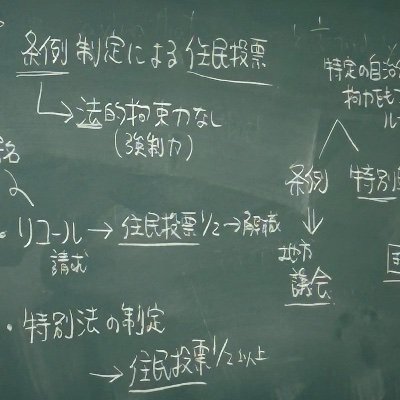 条例制定による住民投票
→法的拘束力なし
(強制力)
名
・リコール→住民投票1/2→解職
請求
・特別法の制定
→住民投票1/2以上
特定の自治
拘力もつ
ル
条例 特別
⇓
地方
議会